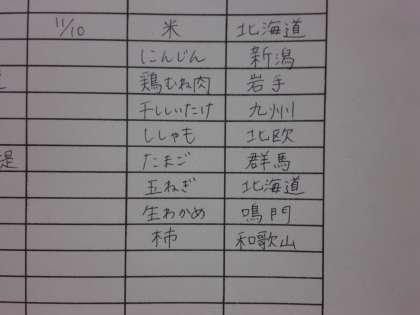 11/10 米 北海道
にんじん 新潟
鶏むね肉 岩手
干ししいたけ 九州
ししゃも 北欧
堤 たまご 群馬
玉ねぎ 北海道
生わかめ 鳴門
柿 和歌山